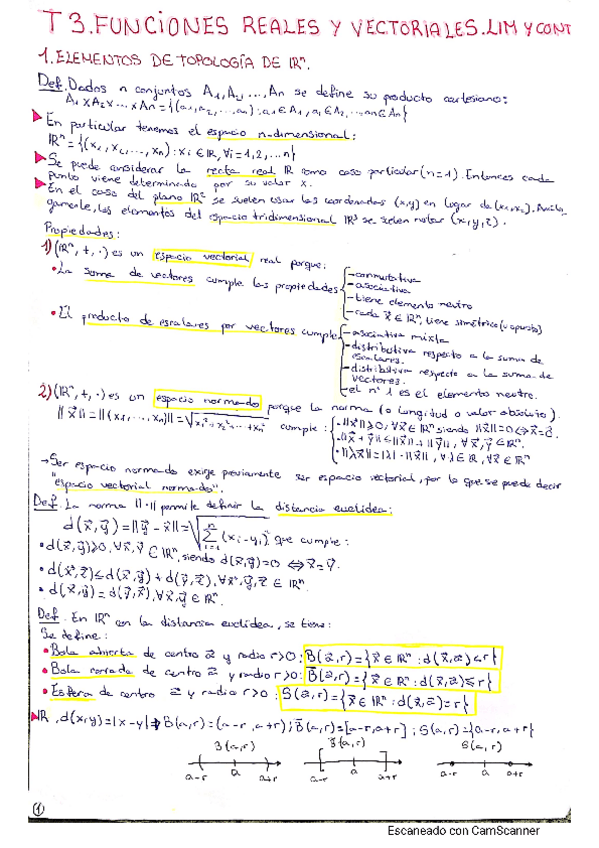 T3. FUNCIONES REALES Y VECTORIALES. LIM Y CONT
1. ELEMENTOS DE TOPOLOGÍA DE ℝⁿ.
Def. Dados n conjuntos A₁, A₂, ..., An se define su producto cartesiano:
A₁ x A₂ x ... x An = {(a₁, a₂, ..., an) : a₁ ∈ A₁, a₂ ∈ A₂, ..., an ∈ An}
En particular tenemos el espacio n-dimensional:
ℝⁿ = {(x₁, x₂, ..., xn) : xi ∈ ℝ, ∀i = 1, 2, ... n}
Se puede considerar la recta real ℝ como caso particular (n=1). Entonces cada
punto viene determinado por su valor x.
En el caso del plano ℝ² se suelen usar las coordenadas (x,y) en lugar de (x₁,x₂). Análo-
gamente, los elementos del espacio tridimensional ℝ³ se suelen notar (x,y,z).
Propiedades:
1) (ℝⁿ, +, ·) es un espacio vectorial real porque:
• La suma de vectores cumple las propiedades
- conmutativa
- asociativa
- tiene elemento neutro
- cada x⃗ ∈ ℝⁿ, tiene simétrico (u opuesto)
• El producto de escalares por vectores cumple
- asociativa mixta
- distributiva respecto a la suma de
escalares.
- distributiva respecto a la suma de
vectores.
- el nº 1 es el elemento neutro.
2) (ℝⁿ, +, ·) es un espacio normado porque la norma (o longitud o valor absoluto).
||x⃗|| = ||(x₁, ..., xn)|| = √x₁² + x₂² + ... + xn² cumple:
· ||x⃗|| ≥ 0, ∀x⃗ ∈ ℝⁿ siendo ||x⃗|| = 0 ⇔ x⃗ = 0⃗.
· ||x⃗ + y⃗|| ≤ ||x⃗|| + ||y⃗||, ∀x⃗, y⃗ ∈ ℝⁿ.
· ||λx⃗|| = |λ| · ||x⃗||, ∀λ ∈ ℝ, ∀x⃗ ∈ ℝⁿ
→ Ser espacio normado exige previamente ser espacio vectorial, por lo que se puede decir
"espacio vectorial normado".
Def. La norma ||·|| permite definir la distancia euclídea:
d(x⃗,y⃗) = ||y⃗ - x⃗|| = √∑ᵢ₌₁ⁿ (xi - yi)² que cumple:
• d(x⃗,y⃗) ≥ 0, ∀x⃗, y⃗ ∈ ℝⁿ, siendo d(x⃗,y⃗) = 0 ⇔ x⃗ = y⃗.
• d(x⃗,z⃗) ≤ d(x⃗,y⃗) + d(y⃗,z⃗), ∀x⃗, y⃗, z⃗ ∈ ℝⁿ.
• d(x⃗,y⃗) = d(y⃗,x⃗), ∀x⃗, y⃗ ∈ ℝⁿ.
Def. En ℝⁿ con la distancia euclídea, se tiene:
Se define:
• Bola abierta de centro a⃗ y radio r>0: B(a⃗,r) = {x⃗ ∈ ℝⁿ : d(x⃗,a⃗) < r}
• Bola cerrada de centro a⃗ y radio r>0: B̄(a⃗,r) = {x⃗ ∈ ℝⁿ : d(x⃗,a⃗) ≤ r}
• Esfera de centro a⃗ y radio r>0: S(a⃗,r) = {x⃗ ∈ ℝⁿ : d(x⃗,a⃗) = r}
ℝ, d(x,y) = |x-y| ⇒ B(a,r) = (a-r, a+r); B̄(a,r) = [a-r, a+r]; S(a,r) = {a-r, a+r}
B(a,r) B̄(a,r) S(a,r)
a-r a a+r a-r a a+r a-r a a+r
1
Escaneado con CamScanner